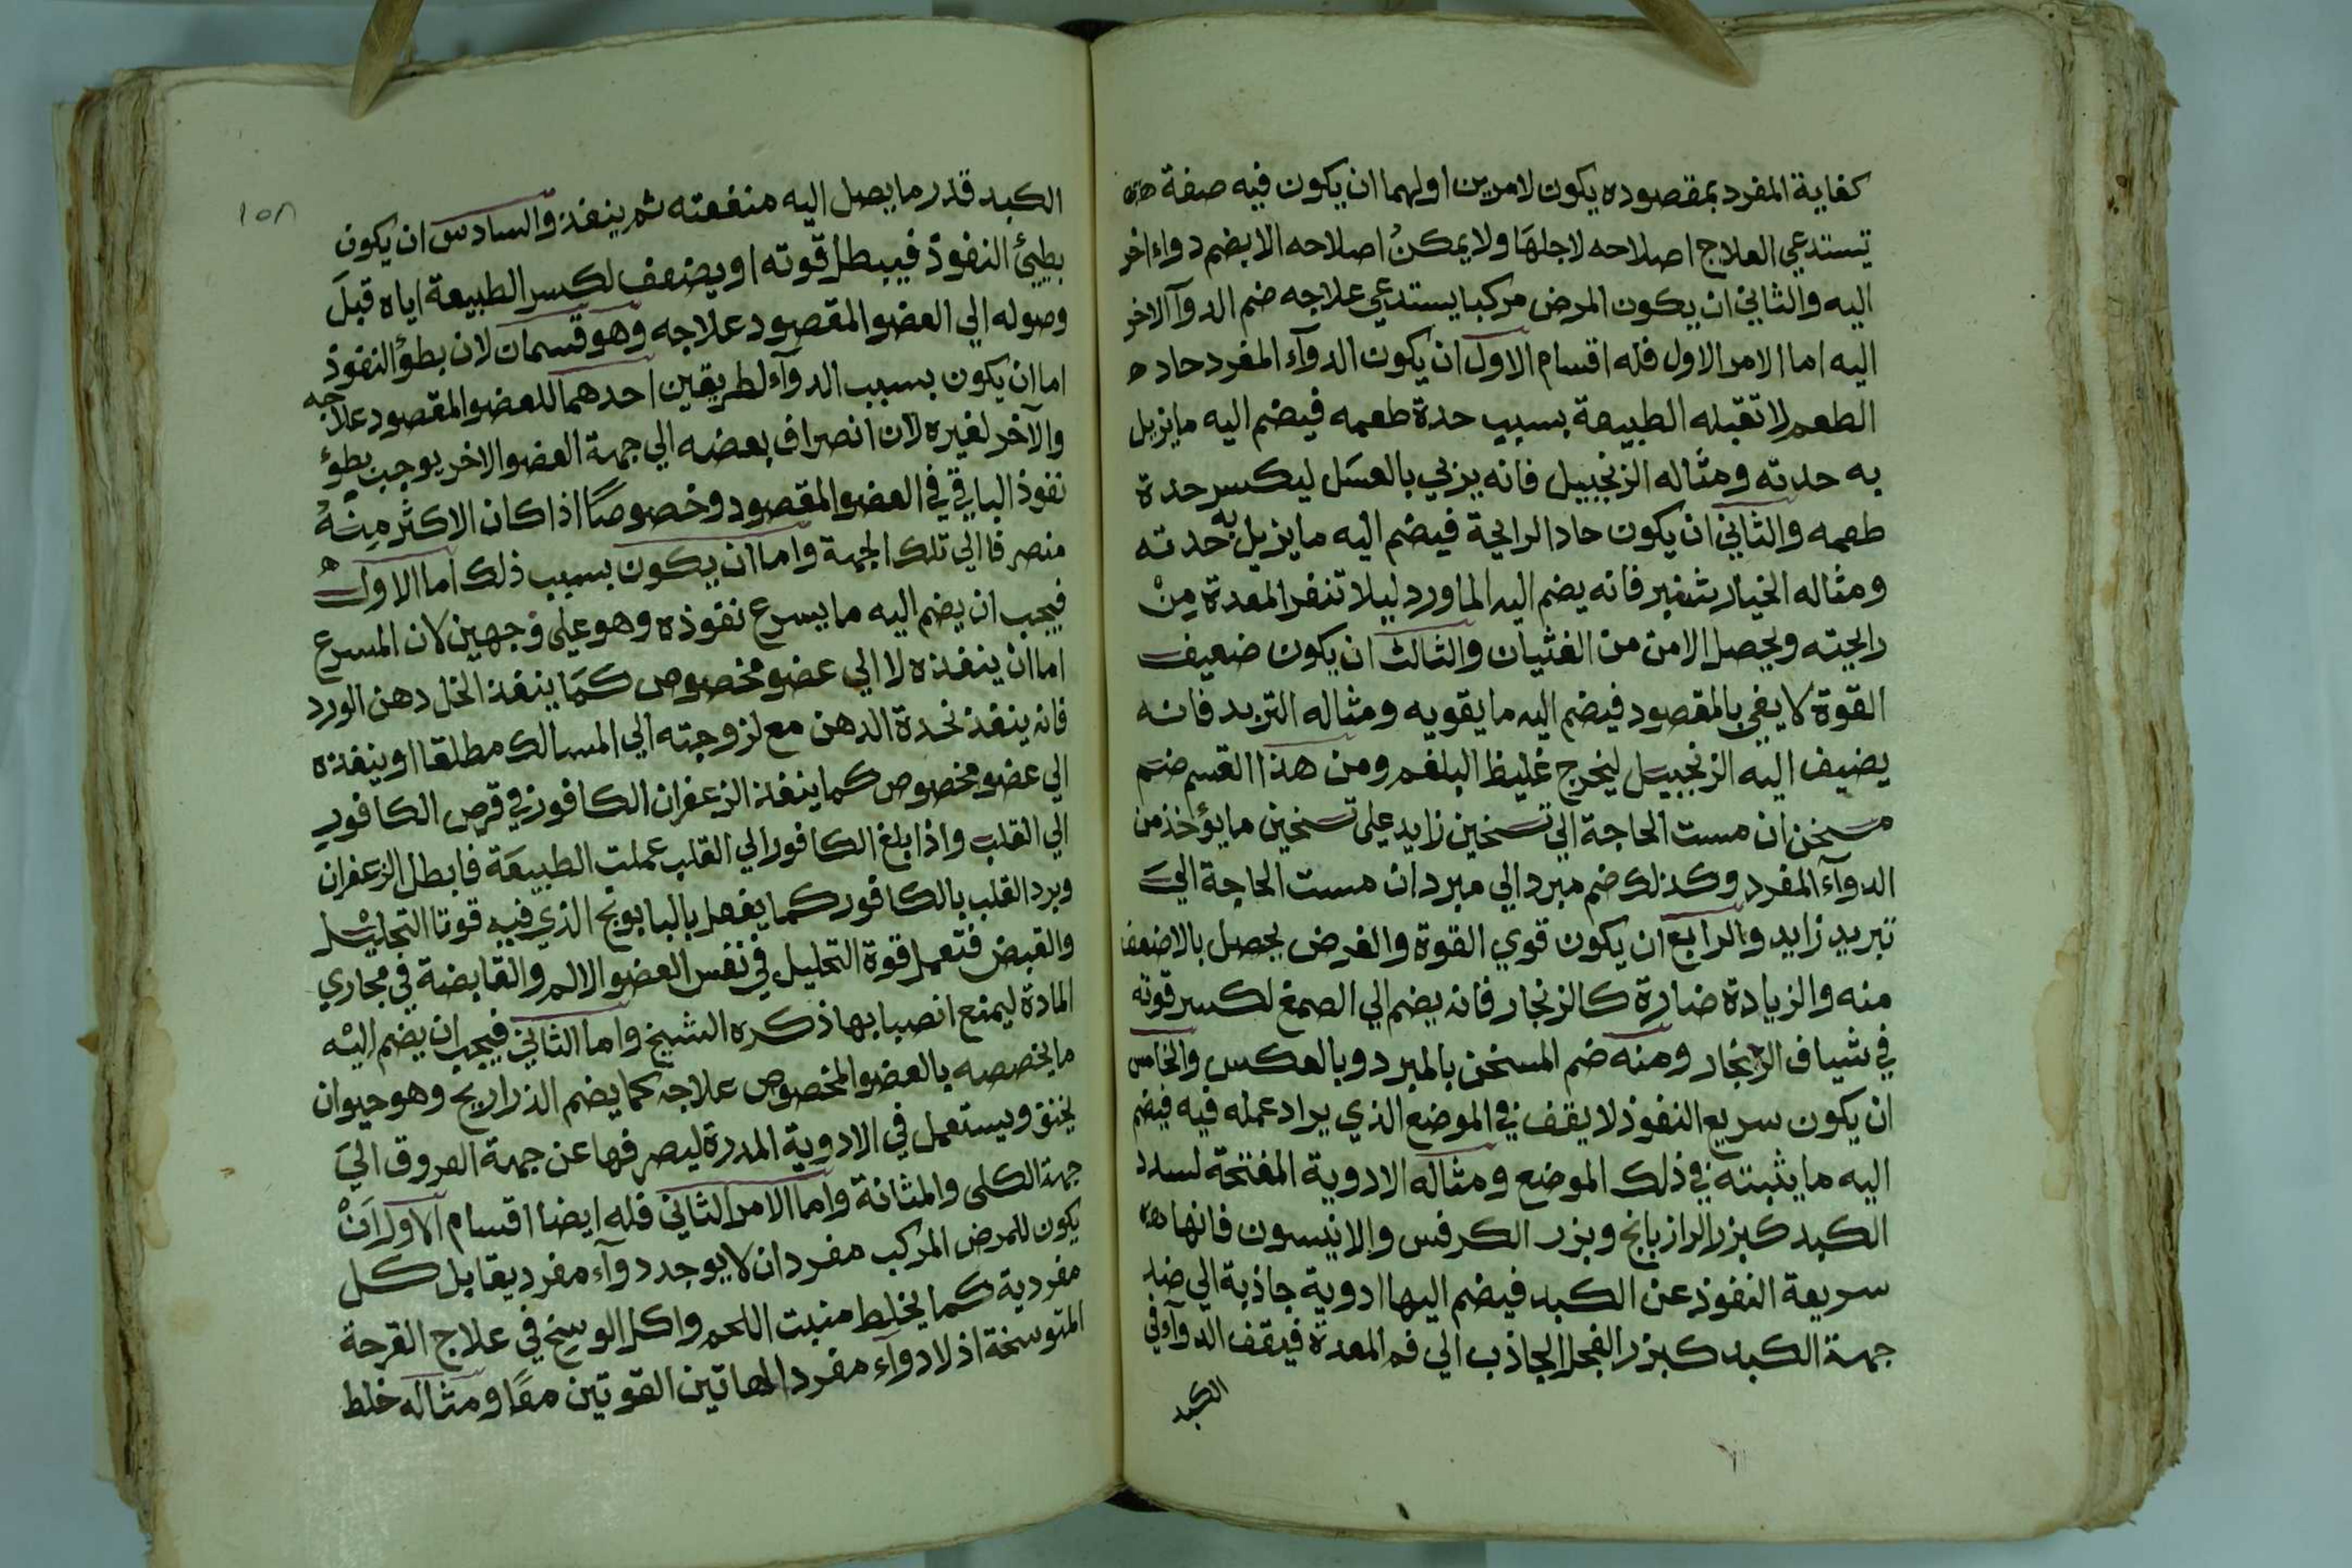 كفاية المفرد بمقصوده يكون لامرين اولهما ان يكون فيه صفة
تستدعي العلاج اصلاحه لاجلها ولا يمكن اصلاحه الا بضم دواء اخر
اليه والثاني ان يكون المرض مركبا يستدعي علاجه ضم الدوآ الاخر
اليه اما الامر الاول فله اقسام الاول ان يكون الدوآء المفرد حاد
الطعم لا تقبله الطبيعة بسبب حدة طعمه فيضم اليه ما يزيل
به حدته ومثاله الزنجبيل فانه يربي بالعسل ليكسر حدة
طعمه والثاني ان يكون حاد الرايحة فيضم اليه ما يزيل به حدته
ومثاله الخيار شنبر فانه يضم اليه الماورد ليلا تنفر المعدة من
رايحته ويحصل الامن من الغثيان والثالث ان يكون ضعيف
القوة لا يفي بالمقصود فيضم اليه ما يقويه ومثاله التربد فانه
يضيف اليه الزنجبيل ليخرج غليظ البلغم ومن هذا القسم ضم
مسخن ان مست الحاجة الي تسخين زايد علي تسخين ما يؤخذ من
الدوآء المفرد وكذلك ضم مبرد الي مبرد ان مست الحاجة الي
تبريد زايد والرابع ان يكون قوي القوة والغرض يحصل بالاضعف
منه والزيادة ضارة كالزنجار فانه يضم الي الصمغ لكسر قوته
في شياف الزنجار ومنه ضم المسخن بالمبرد وبالعكس والخامس
ان يكون سريع النفوذ لا يقف في الموضع الذي يراد عمله فيه فيضم
اليه ما يثبته في ذلك الموضع ومثاله الادوية المفتحة لسدد
الكبد كبزر الرازيانج وبزر الكرفس والانيسون فانها
سريعة النفوذ عن الكبد فيضم اليها ادوية جاذبة الي ضد
جهة الكبد كبزر الفجل الجاذب الي فم المعدة فيقف الدوآء في
الكبد
١٥٨
الكبد قدر ما يصل اليه منفعته ثم ينفذ والسادس ان يكون
بطيئ النفوذ فيبطل قوته او يضعف لكسر الطبيعة اياه قبل
وصوله الي العضو المقصود علاجه وهو قسمان لان بطؤ النفوذ
اما ان يكون بسبب الدوآء لطريقين احدهما للعضو المقصود علاجه
والآخر لغيره لان انصراف بعضه الي جهة العضو الاخر يوجب بطؤ
نفوذ الباقي في العضو المقصود وخصوصًا اذا كان الاكثر منه
منصرفا الي تلك الجهة واما ان يكون بسبب ذلك اما الاول
فيجب ان يضم اليه ما يسرع نفوذه وهو علي وجهين لان المسرع
اما ان ينفذه لا الي عضو مخصوص كما ينفذ الخل دهن الورد
فانه ينفذ بحدة الدهن مع لزوجته الي المسالك مطلقا او ينفذه
الي عضو مخصوص كما ينفذ الزعفران الكافور في قرص الكافور
الي القلب واذا بلغ الكافور الي القلب عملت الطبيعة فابطل الزعفران
وبرد القلب بالكافور كما يفعل بالبابونج الذي فيه قوتا التحليل
والقبض فتعمل قوة التحليل في نفس العضو الالم والقابضة في مجاري
المادة ليمنع انصبابها ذكره الشيخ واما الثاني فيجب ان يضم اليه
ما يخصصه بالعضو المخصوص علاجه كما يضم الذراريح وهو حيوان
يخنق ويستعمل في الادوية المدرة ليصرفها عن جهة العروق الي
جهة الكلى والمثانة واما الامر الثاني فله ايضا اقسام الاول ان
يكون للمرض المركب مفردان لا يوجد دوآء مفرد يقابل كل
مفردية كما يخلط منبت اللحم واكل الوسخ في علاج القرحة
المتوسخة اذ لا دوآء مفرد لهاتين القوتين معًا ومثاله خلط